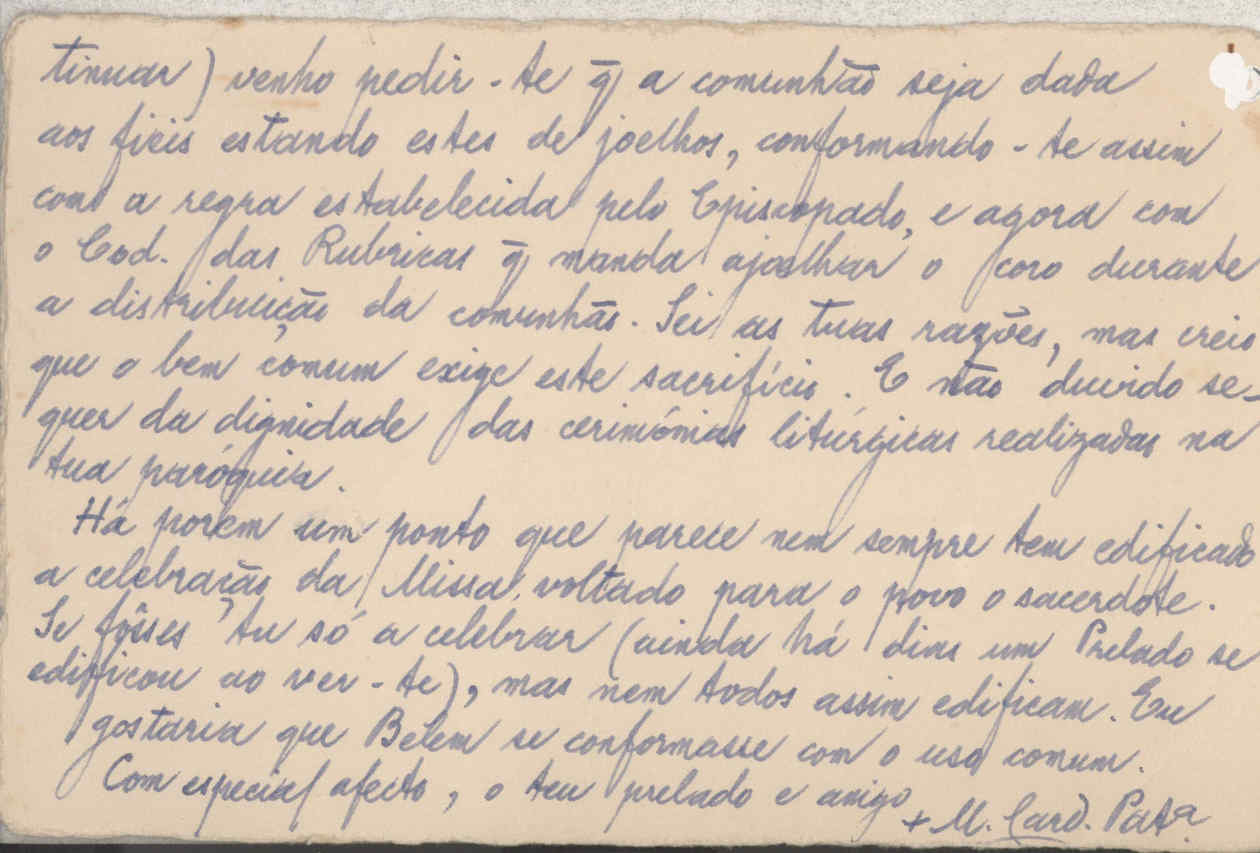 tinuar) venho pedir-te q̄ a comunhão seja dada
aos fieis estando estes de joelhos, conformando-te assim
com a regra estabelecida pelo Episcopado, e agora com
o Cod. das Rubricas q̄ manda ajoelhar o coro durante
a distribuição da comunhão. Sei as tuas razões, mas creio
que o bem comum exige este sacrifício. E não duvido se-
quer da dignidade das cerimónias litúrgicas realizadas na
tua paróquia.
Há porém um ponto que parece nem sempre tem edificado
a celebração da Missa, voltado para o povo o sacerdote.
Se fôsses tu só a celebrar (ainda há dias um Prelado se
edificou ao ver-te), mas nem todos assim edificam. Eu
gostaria que Belém se conformasse com o uso comum.
Com especial afecto, o teu prelado e amigo
+ M. Card. Patª